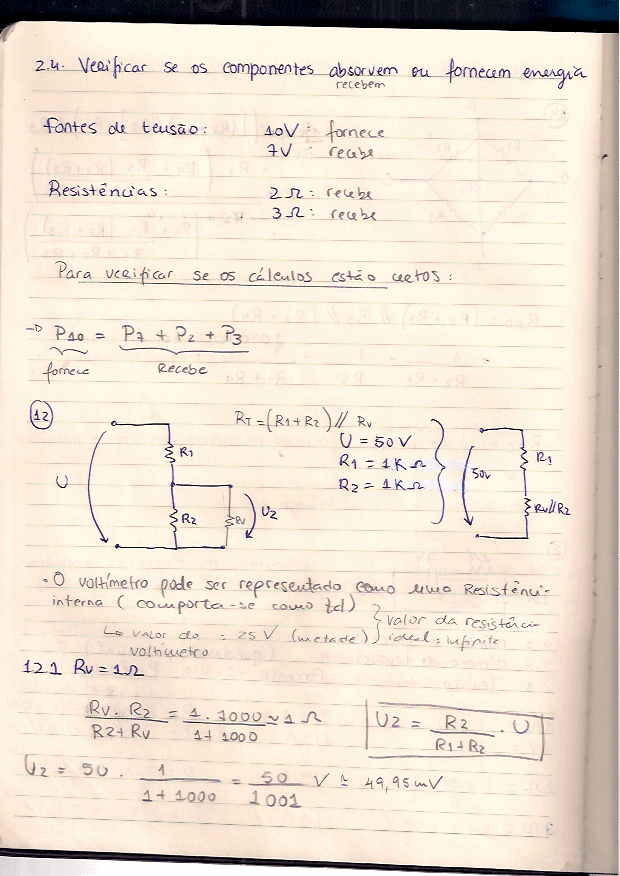 2.4. Verificar se os componentes absorvem ou fornecem energia
recebem
Fontes de tensão: 10V: fornece
7V: recebe
Resistências: 2Ω: recebe
3Ω: recebe
Para verificar se os cálculos estão certos:
→ P10 = P7 + P2 + P3
fornece Recebe
12
RT = (R1 + R2) // Rv
U = 50V
R1 = 1KΩ
R2 = 1KΩ
U R1 R2 Rv U2
50V R1 Rv//R2
• O voltímetro pode ser representado como uma Resistênci-
interna (comporta-se como tal)
↳ valor do = 25V (metade)
voltímetro
valor da resistênci-
ideal = infinito
12.1 Rv = 1Ω
Rv . R2 / R2 + Rv = 1 . 1000 / 1 + 1000 ≃ 1Ω
U2 = R2 / R1 + R2 . U
U2 = 50 . 1 / 1 + 1000 = 50 / 1001 V ≃ 49,95mV